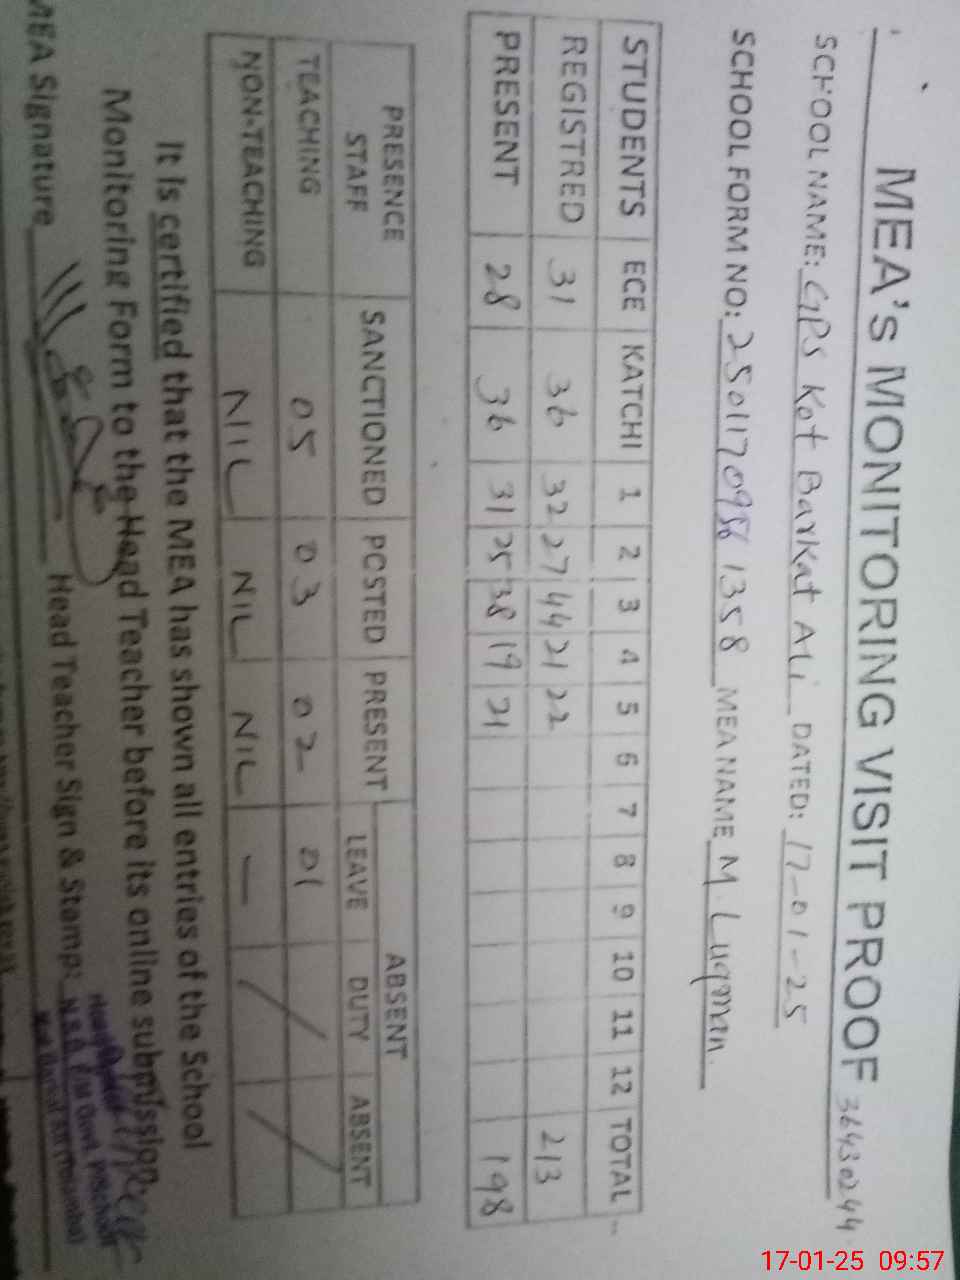 MEA's MONITORING VISIT PROOF 36430244
SCHOOL NAME: GPS Kot Barkat Ali DATED: 17-01-25
SCHOOL FORM NO: 2501170956 1358 MEA NAME M. Luqman.
STUDENTS ECE KATCHI 1 2 3 4 5 6 7 8 9 10 11 12 TOTAL
REGISTRED 31 36 32 27 44 21 22 213
PRESENT 28 36 31 25 38 19 21 198
PRESENCE STAFF SANCTIONED POSTED PRESENT ABSENT
LEAVE DUTY ABSENT
TEACHING 05 03 02 01
NON-TEACHING NIL NIL NIL — / /
It is certified that the MEA has shown all entries of the School
Monitoring Form to the Head Teacher before its online submission.
MEA Signature Head Teacher Sign & Stamp:
17-01-25 09:57